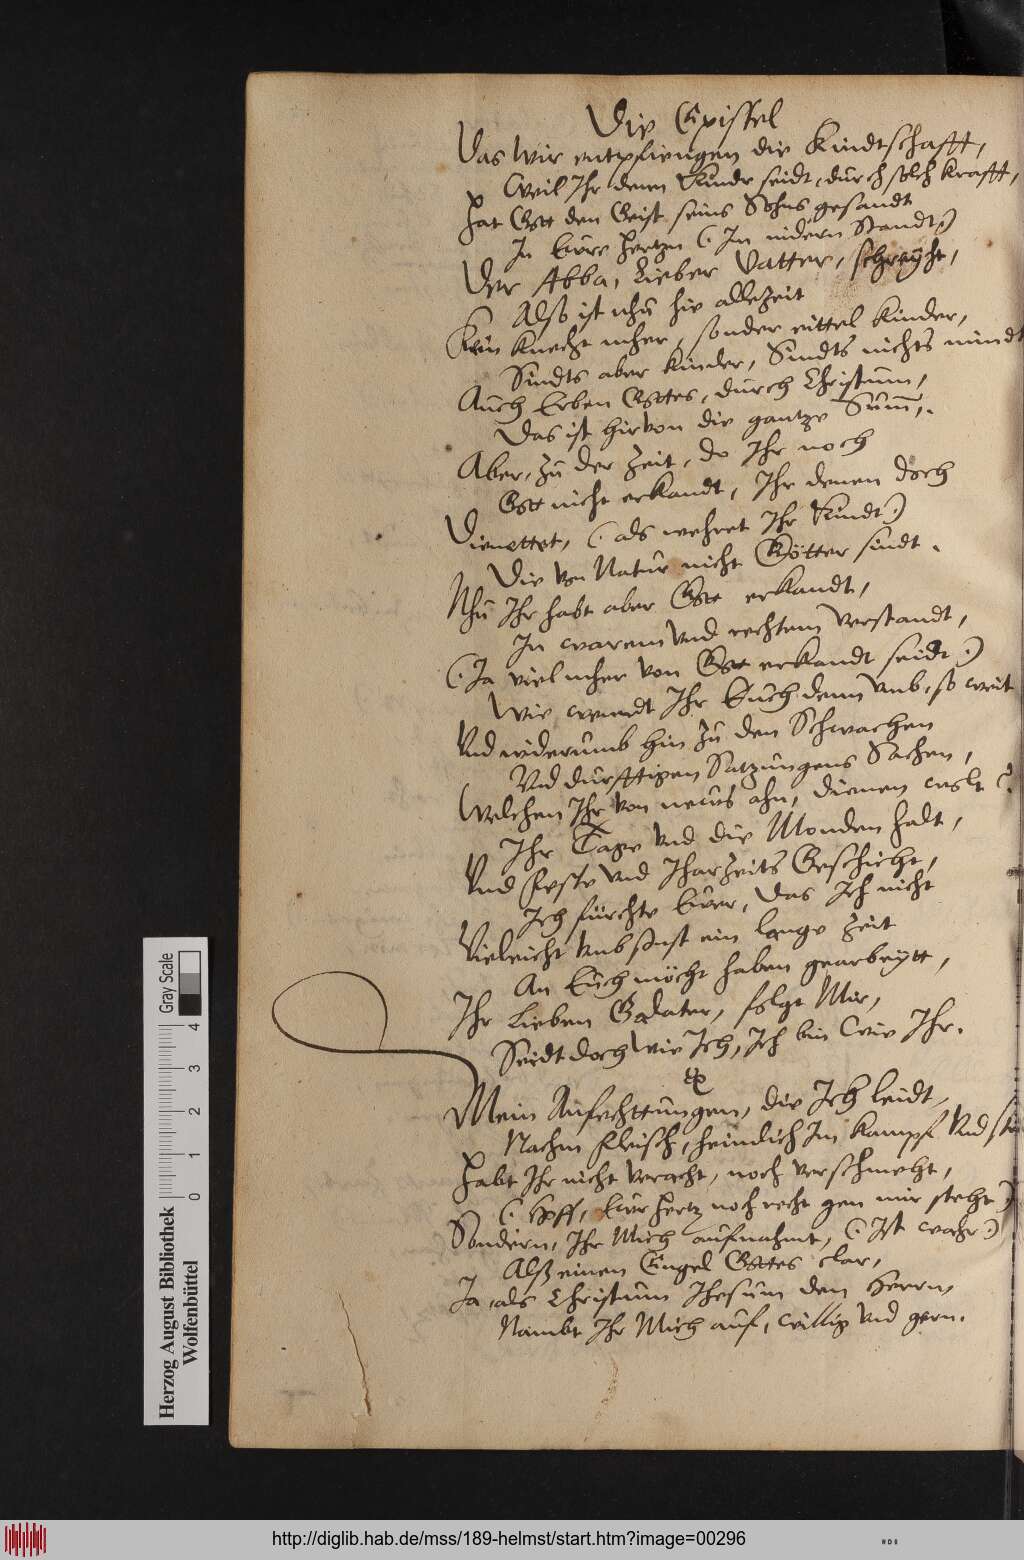 Die Epistel
Das Wir entpfiengen die Kindtschafft,
Weil Ihr denn Kinde seidt, durch solch krafft,
Hat Gott den Geist seins Sohns gesandt
In Eure Hertzen (: In nidern Standt :)
Der Abba, Lieber Vatter, schreyht,
Also ist nhu hie allezeit
Kein Knecht mher, sonder eittel Kinder,
Sindts aber Kinder, Sindts nichts mindr
Auch Erben Gottes, durch Christum,
Das ist hirvon die gantze Summ,.
Aber, zu der Zeit, do Ihr noch
Gott nicht erkandt, Ihr denen doch
Dienettet, (: als wehret Ihr Kindt :)
Die von Natur nicht Götter sindt.
Nhu Ihr habt aber Gott erkandt,
In warem Vnd rechtem Verstandt,
(: Ja viel mher von Gott erkandt seidt :)
Wie wendt Ihr Euch denn Vmb, so weit
Vnd widerumb hin zu den Schwachen
Vnd durfftigen Satzungens Sachen,
Welchen Ihr von neues ahn, dienen wolt ?
Ihr Tage Vnd die Monden halt,
Vnd Feste Vnd Iharzeits Geschicht,
Ich fürchte Euer, Das Ich nicht
Vieleicht Vmbsonst ein lange Zeit
An Euch möcht haben gearbeytt,
Ihr Lieben Galater, folgt Mir,
Seidt doch Wie Ich, Ich bin Wie Ihr.
Mein Anfechttungen, die Ich leidt,
Nachm Fleisch, heimlich Im Kampf Vnd
Habt Ihr nicht Veracht, noch Verschmeht,
(: Hoff, Eur Hertz noch recht gen mir steht :)
Sondern, Ihr Mich aufnahmt, (: Ist wahr :)
Alß einen Engel Gottes clar,
Ja, als Christum Ihesum den Herrn,
Nambt Ihr Mich auf, willig Vnd gern.
Gray Scale
4 3 2 1 0
Herzog August Bibliothek
Wolfenbüttel
http://diglib.hab.de/mss/189-helmst/start.htm?image=00296